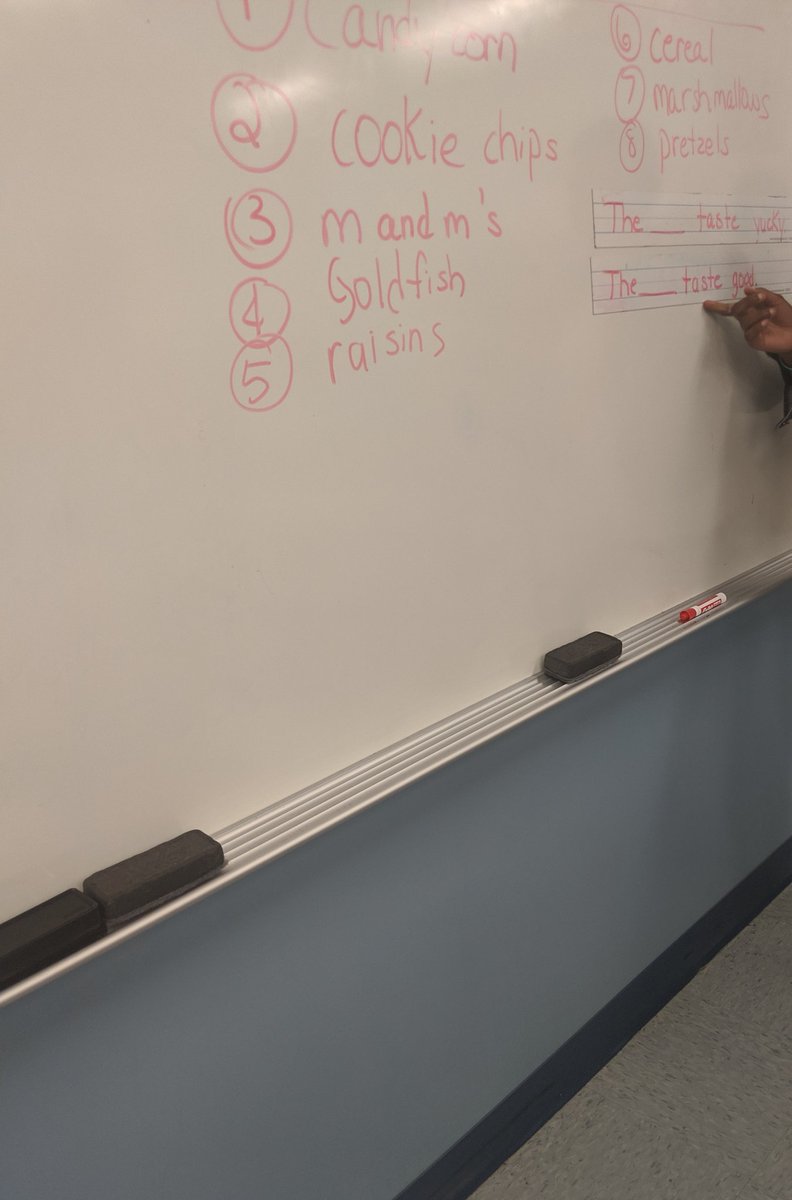 1 Candy corn
2 cookie chips
3 m and m's
4 Goldfish
5 raisins
6 cereal
7 marshmallows
8 pretzels
The ___ taste yucky.
The ___ taste good.